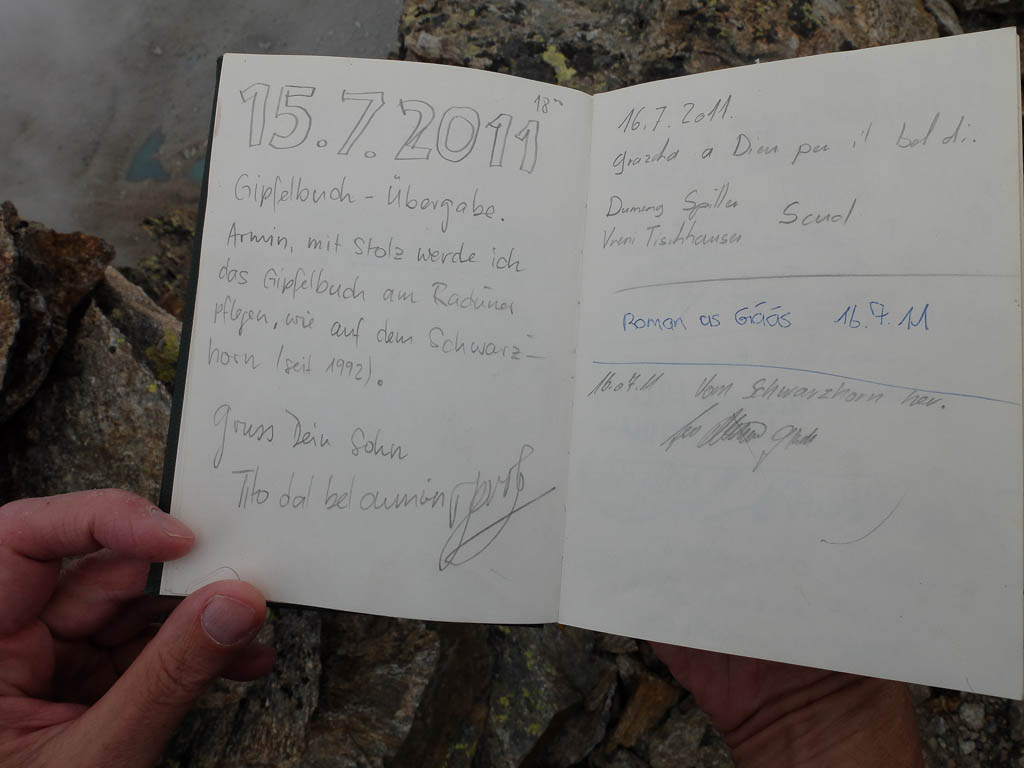 15.7.2011 18⁰⁰
Gipfelbuch - Übergabe.
Armin, mit Stolz werde ich
das Gipfelbuch am Radüner
pflegen, wie auf dem Schwarz-
horn (seit 1992).
Gruss Dein Sohn
Tito dal bel
16.7.2011.
grazcha a Dieu per il bel di.
Dumeng Spiller Scuol
Vreni Tischhauser
Roman us 16.7.11
16.07.11 Vom Schwarzhorn her.